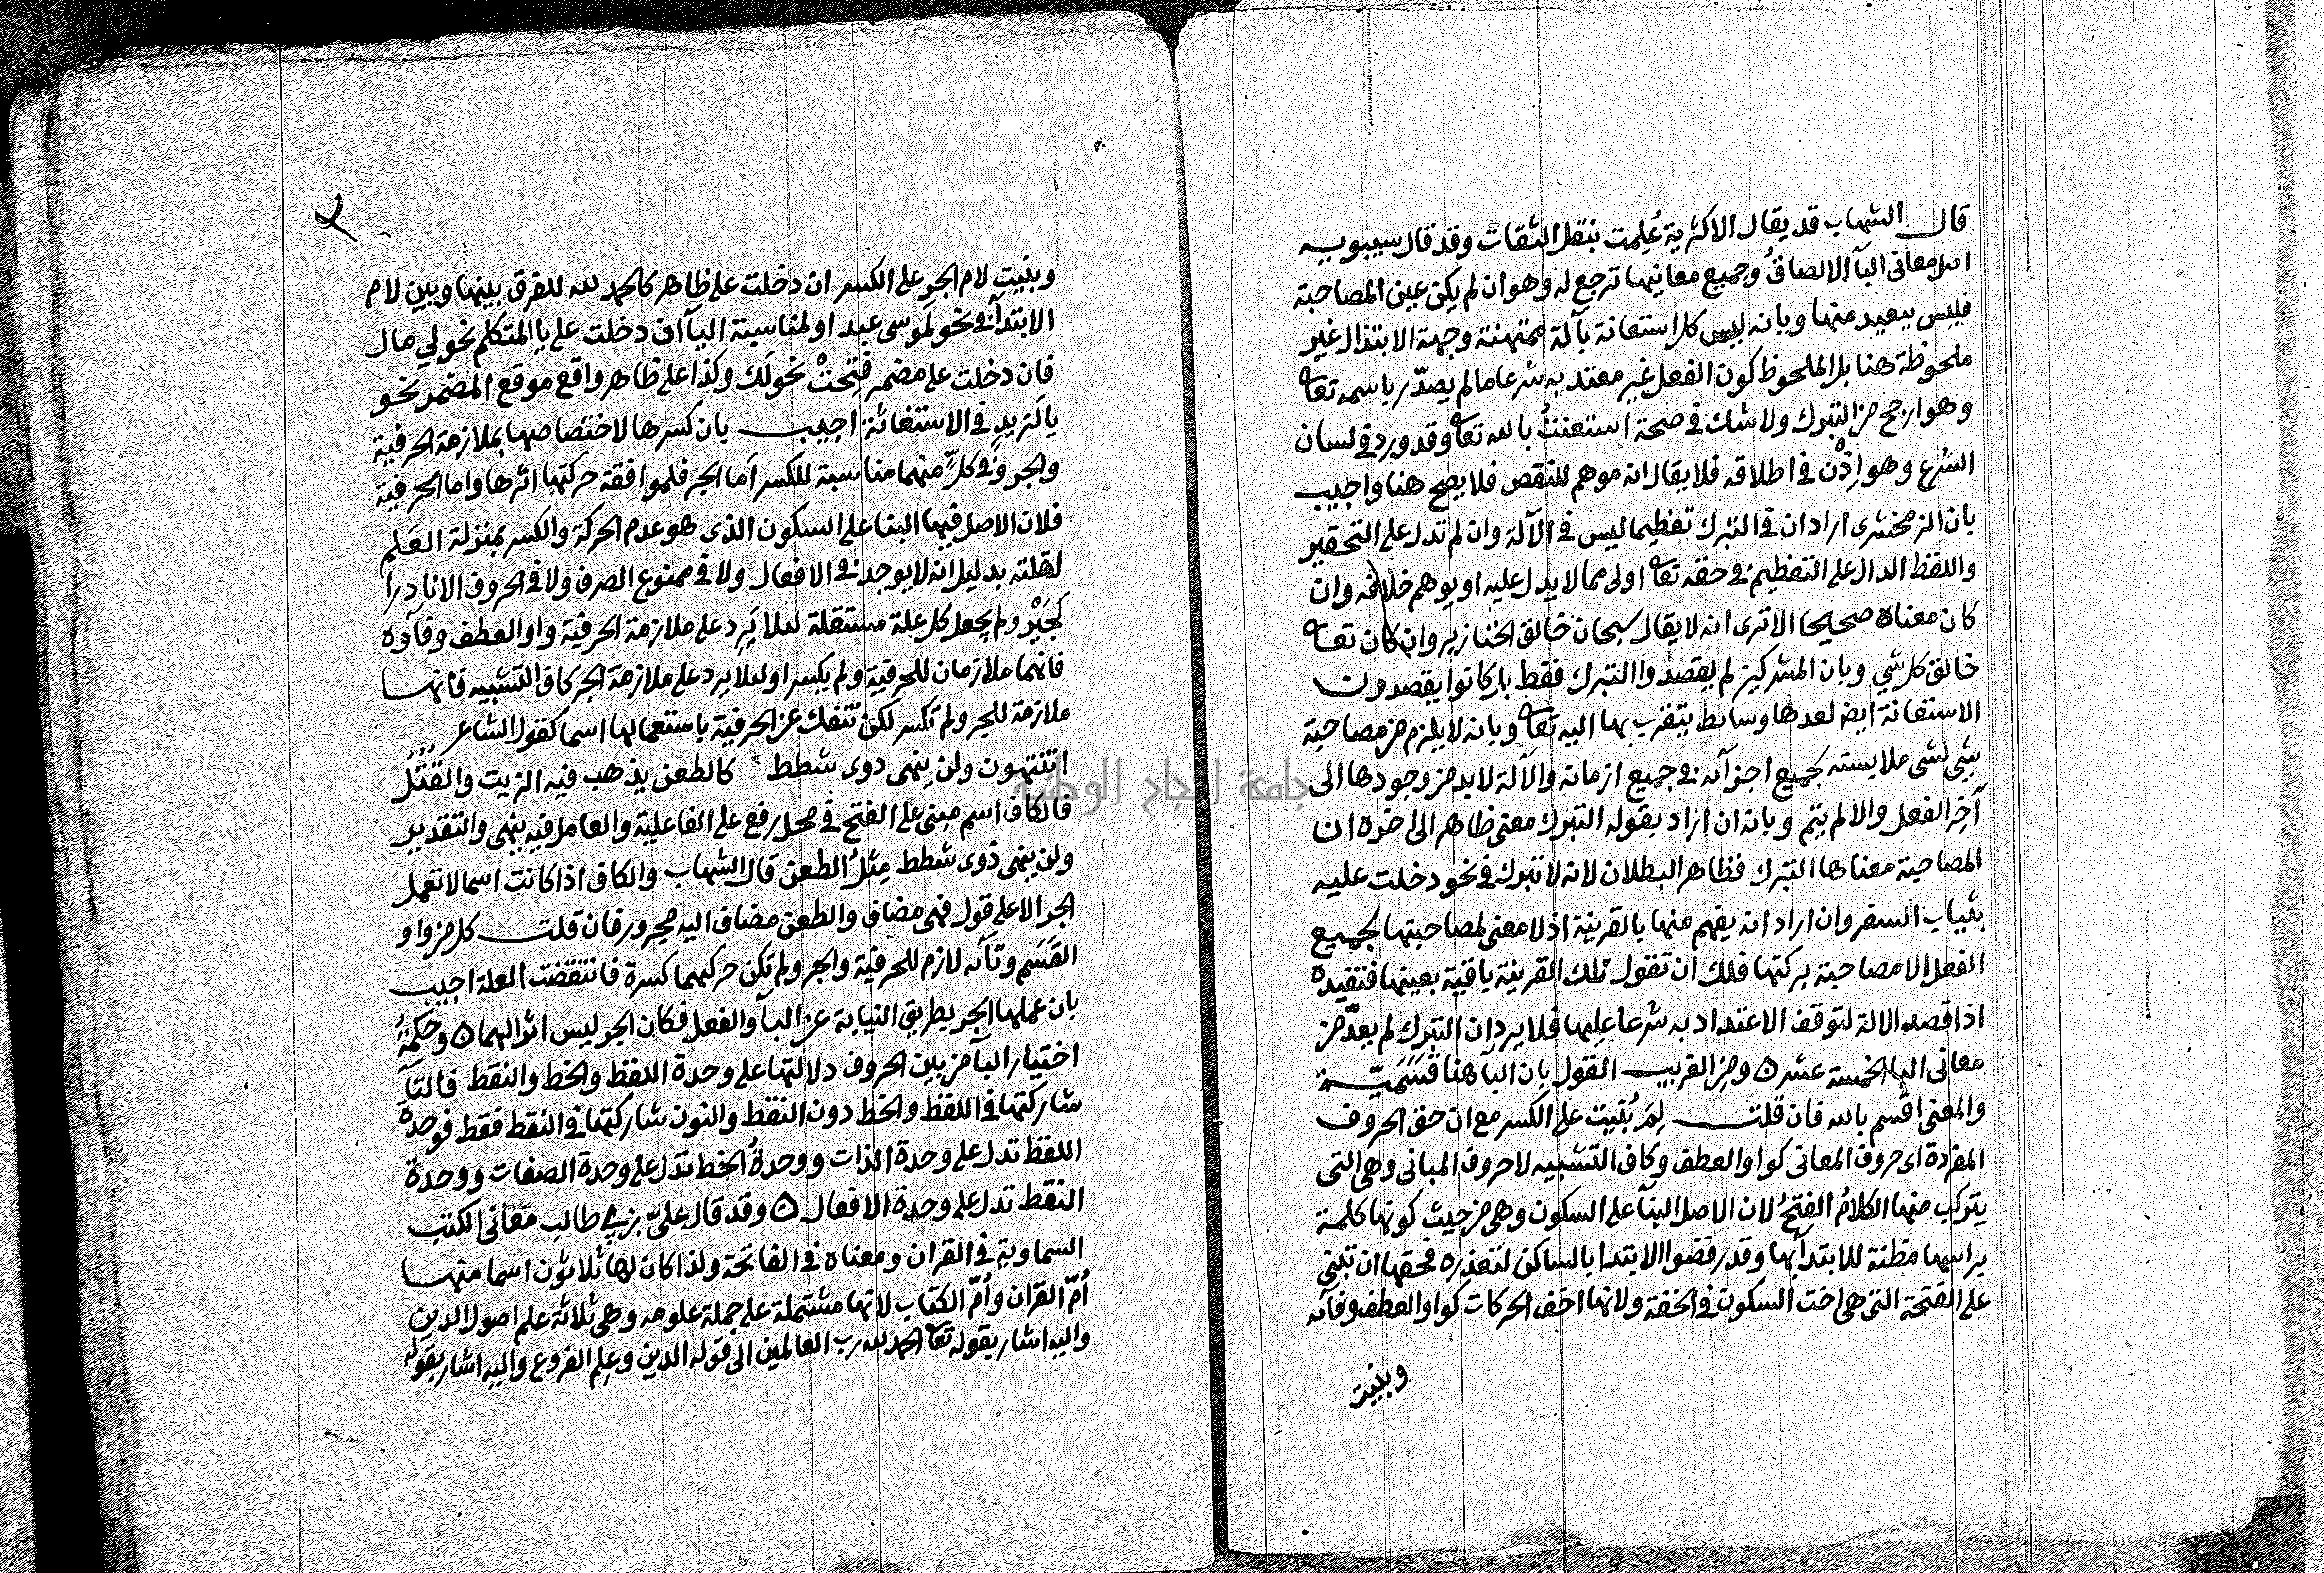 قال الشهاب قد يقال الاكثرية عُلِمت بنقل الثقات وقد قال سيبويه
اصل معاني البآ الالصاقُ وجميع معانيها ترجع له وهو ان لم يكن عين المصاحبة
فليس ببعيد منها وبانه ليس كل استعانة بآلة ممتهنة وجهة الابتذال غير
ملحوظة هنا بل الملحوظ كون الفعل غير معتد به شرعا ما لم يصدّر باسمه تعا
وهو ارجح من التبرك ولا شك في صحة استعنتُ بالله تعا وقد ورد في لسان
الشرع وهو إذْن في اطلاقه فلا يقال انه موهم للنقص فلا يصح هنا واجيب
بان الزمخشرى اراد ان في التبرك تعظيما ليس في الآلة وان لم تدل على التحقير
واللفظ الدال على التعظيم في حقه تعا اولى مما لا يدل عليه او يوهم خلافه وان
كان معناه صحيحا الا ترى انه لا يقال سبحان خالق الخنازير وان كان تعا
خالق كل شي وبان المشركين لم يقصدوا التبرك فقط بل كانوا يقصدون
الاستعانة ايضا لعدها وسايط يتقرب بها اليه تعا وبانه لا يلزم من مصاحبة
شي لشي ملابسته لجميع اجزآئه في جميع ازمانه والآلة لا بد من وجودها الى
آخِر الفعل والا لم يتم وبانه ان اراد بقوله التبرك معنى ظاهر الى اخره ان
المصاحبة معناها التبرك فظاهر البطلان لانه لا تبرك في نحو دخلت عليه
بثياب السفر وان اراد انه يفهم منها بالقرينة اذ لا معنى لمصاحبتها لجميع
الفعل الا مصاحبة بركتها فلك ان تقول تلك القرينة باقية بعينها فتفيده
اذا قصد الالة لتوقف الاعتداد به شرعا عليها فلا يرد ان التبرك لم يعدّ من
معانى البا الخمسة عشر ه ومن القريب القول بان البآ هنا قَسَمِيّة
والمعنى اقسم بالله فان قلت لِمَ بُنيت على الكسر مع ان حق الحروف
المفردة اى حروف المعانى كواو العطف وكاف التشبيه لا حروف المبانى وهى التى
يتركب منها الكلامُ الفتحُ لان الاصل البنآ على السكون وهى من حيث كونها كلمة
براسها مظنة للابتدآ بها وقد رفضوا الابتدا بالساكن لتعذره فحقها ان تبنى
على الفتحة التى هى اخت السكون في الخفة ولانها اخف الحركات كواو العطف وفآئه
وبنيت
وبنيت لام الجر على الكسر ان دخلت على ظاهر كالحمد لله للفرق بينها وبين لام
الابتدآ في نحو لموسى عبد او لمناسبة اليآ ان دخلت على يا المتكلم نحو لي مال
فان دخلت على مضمر فُتِحتْ نحو لَك وكذا على ظاهر واقع موقع المضمر نحو
يا لَزيد في الاستغاثة اجيب بان كسرها لاختصاصها بملازمة الحرفية
والجر وفي كلٍّ منهما مناسبة للكسر اما الجر فلموافقة حركتها اثرها واما الحرفية
فلان الاصل فيها البنا على السكون الذى هو عدم الحركة والكسر بمنزلة العَدم
لقلته بدليل انه لا يوجد في الافعال ولا في ممنوع الصرف ولا في الحروف الا نادرا
كجَيْرِ ولم يجعل كل علة مستقلة لئلا يَرِد على ملازمة الحرفية واو العطف وفآؤه
فانهما ملازمان للحرفية ولم يكسرا ولئلا يرد على ملازمة الجر كاف التشبيه فانها
ملازمة للجر ولم تكسر لكن تنفك عن الحرفية باستعمالها اسما كقول الشاعر
اتنتهون ولن ينهى ذوى شطط كالطعن يذهب فيه الزيت والفُتُلُ
فالكاف اسم مبنى على الفتح في محل رفع على الفاعلية والعامل فيه ينهى والتقدير
ولن ينهى ذوى شطط مِثلُ الطعن قال الشهاب والكاف اذا كانت اسما لا تعمل
الجر الا على قول فهى مضاف والطعن مضاف اليه مجرور فان قلت كل من واو
القَسَم وتآئه لازم للحرفية والجر ولم تكن حركتهما كسرة فانتقضت العلة اجيب
بان عملهما الجر بطريق النيابة عن البآ والفعل فكان الجر ليس اثرا لهما ه وحكمةُ
اختيار البآ من بين الحروف دلالتها على وحدة اللفظ والخط والنقط فالتآ
شاركتها في اللفظ والخط دون النقط والنون شاركتها في النقط فقط فوحدة
اللفظ تدل على وحدة الذات ووحدةُ الخط تدل على وحدة الصفات ووحدة
النقط تدل على وحدة الافعال ه وقد قال علىّ بن ابي طالب معانى الكتب
السماوية في القران ومعناه في الفاتحة ولذا كان لها ثلاثون اسما منها
أُمّ القران وأُمّ الكتاب لانها مشتملة على جملة علومه وهى ثلاثة علم اصول الدين
واليه اشار بقوله تعا الحمد لله رب العالمين الى قوله الدين وعِلم الفروع واليه اشار بقوله
جامعة النجاح الوطنية